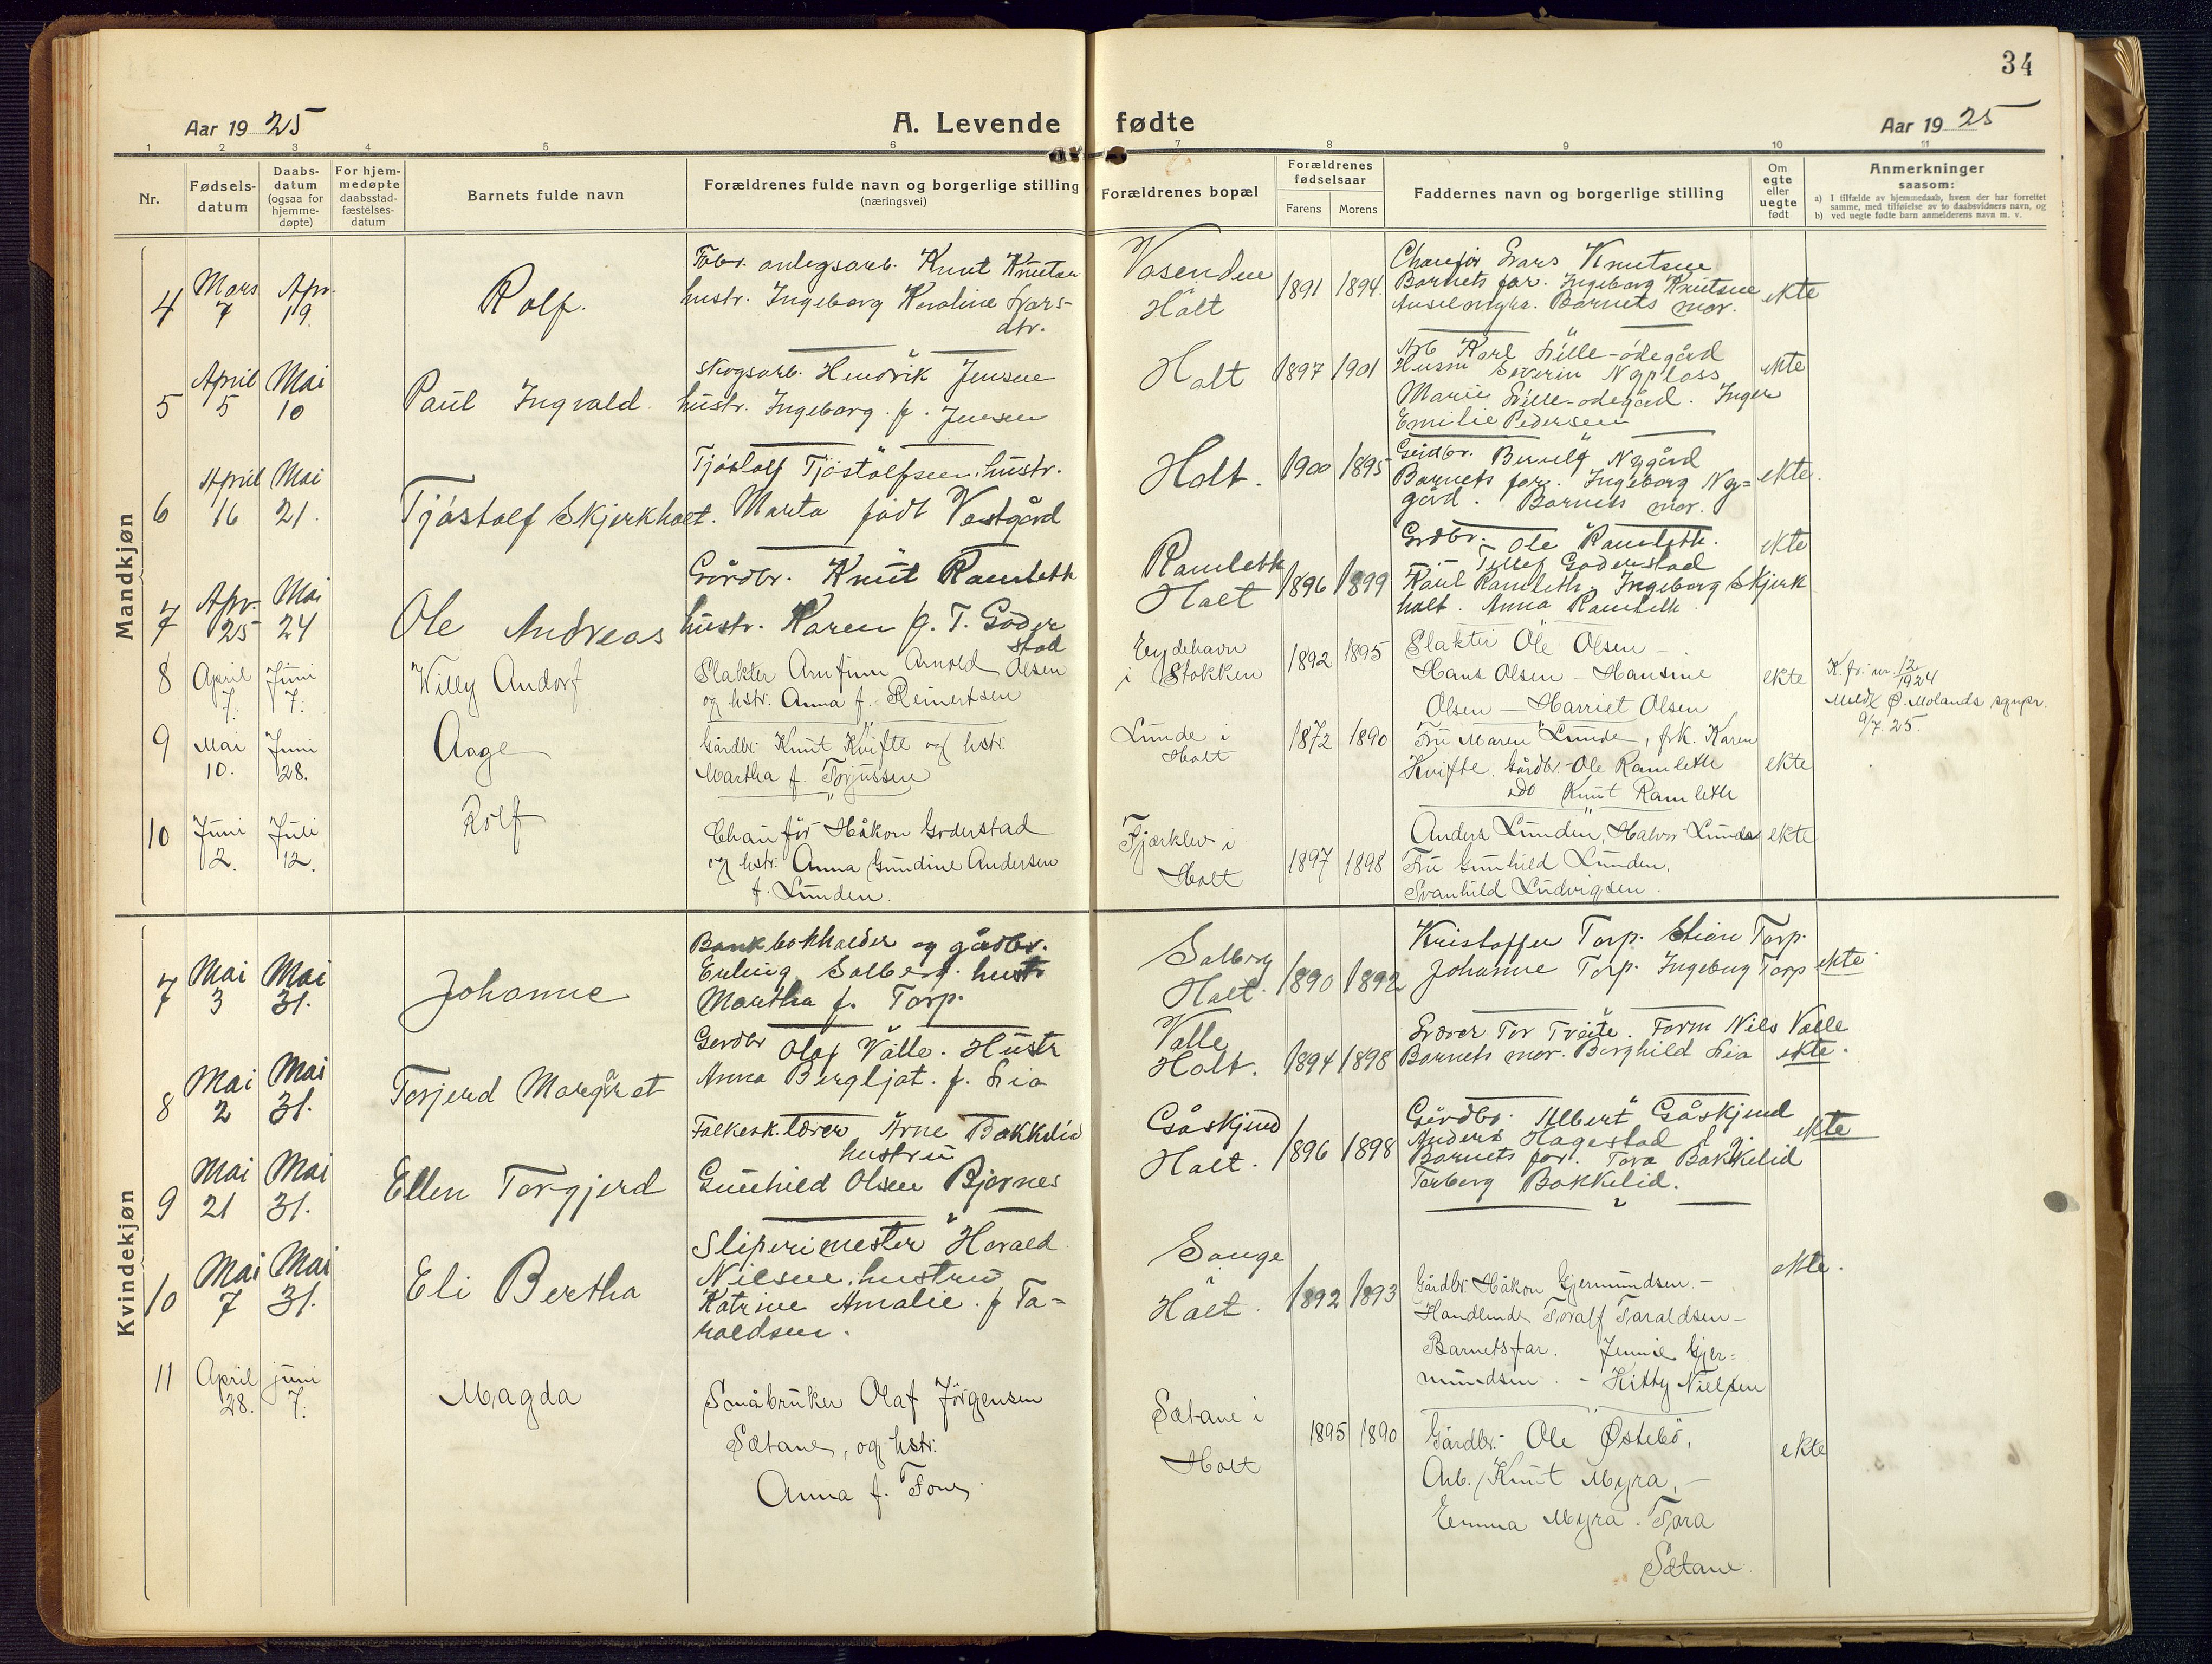 34
Aar 1925
A. Levende fødte
Aar 1925
1 2 3 4 5 6 7 8 9 10 11
Nr.
Fødsels-
datum
Daabs-
datum
(ogsaa for
hjemme-
døpte)
For hjem-
medøpte
daabsstad-
fæstelses-
datum
Barnets fulde navn
Forældrenes fulde navn og borgerlige stilling
(næringsvei)
Forældrenes bopæl
Forældrenes
fødselsaar
Farens Morens
Faddernes navn og borgerlige stilling
Om
egte
eller
uegte
født
Anmerkninger
saasom:
a) I tilfælde av hjemmedaab, hvem der har forrettet
samme, med tilføielse av to daabsvidners navn, og
b) ved uegte fødte barn anmelderens navn m. v.
Mandkjøn
4
Mars
7
Apr.
19.
Rolf.
Fabr. anlegsarb. Knut Knutsen
hustr. Ingeborg Karoline Lars-
dtr.
Vasenden
Holt
1891 1894.
Chaufør Lars Knutsen
Barnets far. Ingeborg Knutsen
Barnets mor.
ekte
5
April
5
Mai
10
Paul Ingvald.
Skogsarb. Hendrik Jensen
hustr. Ingeborg. f. Jensen
Holt
1897 1901
Arb Karl Lille-ødegård
Husm Severin Nyplass
Marie Lille-ødegård. Inger
Emilie Pedersen
ekte
6
April
16
Mai
21.
Tjøstolf Skjerkholt.
Tjøstolf Tjøstolfsen, hustr.
Marta født Vestgård
Holt.
1900 1895
Gårdbr. Nygård
Barnets far. Ingeborg Ny=
gård. Barnets mor.
ekte.
7
Apr.
25
Mai
24
Ole Andreas
Gårdbr. Knut Ramleth
hustr. Karen f. T. Goder
stad
Ramleth
Holt
1896 1899
Grdbr. Ole Ramleth.
Tellef Goderstad
Karl Ramleth. Ingeborg Skjerk
holt. Anna Ramleth
ekte
8
April
7.
Juni
7.
Willy Andorf
Slakter Arnfinn Arnold Olsen
og hstr. Anna f. Reinertsen
Eydehavn
i Stokken
1892 1895
Slakter Ole Olsen –
Hans Olsen – Hansine
Olsen – Harriet Olsen
ekte
K. fr. nr. 12/1924
Meldt Ø. Molands sgnpr.
9/7.25.
9
Mai
10.
Juni
28.
Aage
Gårdbr. Knut Kvifte og hstr.
Martha f. Torjussen
Lunde i
Holt
1872 1890
Fru Maren Lunde, frk. Karen
Kvifte. Gårdbr. Ole Ramleth
do Knut Ramleth
ekte
10
Juni
2.
Juli
12.
Rolf
Chaufför Håkon Goderstad
og hstr. Anna Gundine Andersen
f. Lunden.
Fjærklev i
Holt
1897 1898
Anders Lunden, Halvor Lunden
Fru Gunhild Lunden,
Svanhild Ludvigsen.
ekte
Kvindekjøn
7
Mai
3
Mai
31.
Johanne
Bankbokholder og gårdbr.
Erling Solberg. hustr
Martha f. Torp.
Solberg
Holt.
1890 1892
Kristoffer Torp. Stian Torp.
Johanne Torp. Ingeborg Torp
ekte.
8
Mai
2
Mai
31.
Torjerd Margaret
Gårdbr Olaf Valle. Hustr
Anna Bergljot. f. Lia
Valle
Holt.
1894 1898
Lærer Tor Tveite. Form Nils Valle
Barnets mor. Borghild Lia
ekte.
9
Mai
21
Mai
31.
Ellen Torgjerd
Folkesk. lærer Arne Bakkelid
hustru
Gunhild Olsen Bjornes
Gåskjend
Holt.
1896 1898
Gårdbr. Albert Gåskjend
Anders Hagestad
Barnets far. Tora Bakkelid
Torborg Bakkelid.
ekte
10
Mai
7
Mai
31.
Eli Bertha
Sliperimester Harald
Nilsen, hustru
Katrine Amalie. f Ta=
raldsen.
Songe
Holt.
1892 1893
Gårdbr. Håkon Gjermundsen. –
Handlende Toralf Taraldsen –
Barnets far. Jennie Gjer=
mundsen. – Kitty Nielsen
ekte.
11
April
28.
juni
7.
Magda
Småbruker Olaf Jörgensen
Sætane, og hstr.
Anna f. Fone.
Sætane i
Holt
1895 1890
Gårdbr. Ole Østebö,
Arb. Knut Myra, –
Emma Myra. Tora
Sætane.
ekte